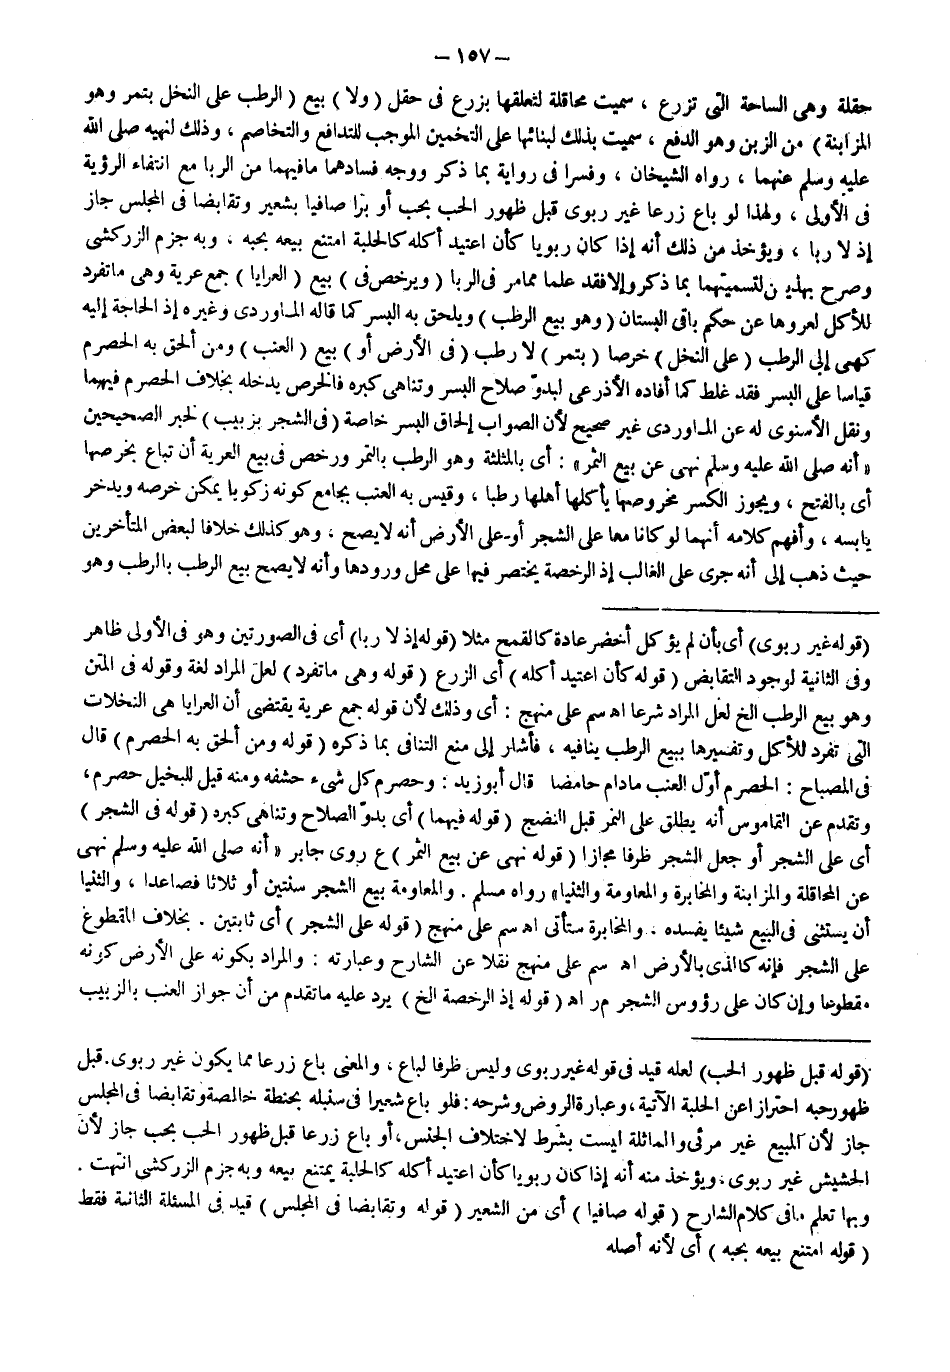 – ١٥٧ –
حقلة وهى الساحة التى تزرع ، سميت محاقلة لتعلقها بزرع فى حقل ( ولا ) بيع ( الرطب على النخل بتمر وهو
المزابنة ) من الزبن وهو الدفع ، سميت بذلك لبنائها على التخمين الموجب للتدافع والتخاصم ، وذلك لنهيه صلى الله
عليه وسلم عنهما ، رواه الشيخان ، وفسرا فى رواية بما ذكر ووجه فسادهما مافيهما من الربا مع انتفاء الرؤية
فى الأولى ، ولهذا لو باع زرعا غير ربوى قبل ظهور الحب بحب أو برّا صافيا بشعير وتقابضا فى المجلس جاز
إذ لا ربا ، ويؤخذ من ذلك أنه إذا كان ربويا كأن اعتيد أكله كالحلبة امتنع بيعه بحبه ، وبه جزم الزركشى
وصرح بهذين لتسميتهما بما ذكر وإلا فقد علما ممامر فى الربا ( ويرخص فى ) بيع ( العرايا ) جمع عرية وهى ماتفرد
للأكل لعروها عن حكم باقى البستان ( وهو بيع الرطب ) ويلحق به البسر كما قاله الماوردى وغيره إذ الحاجة إليه
كهى إلى الرطب ( على النخل ) خرصا ( بتمر ) لا رطب ( فى الأرض أو ) بيع ( العنب ) ومن ألحق به الحصرم
قياسا على البسر فقد غلط كما أفاده الأذرعى لبدوّ صلاح البسر وتناهى كبره فالخرص يدخله بخلاف الحصرم فيهما
ونقل الأسنوى له عن الماوردى غير صحيح لأن الصواب إلحاق البسر خاصة ( فى الشجر بزبيب ) لخبر الصحيحين
« أنه صلى الله عليه وسلم نهى عن بيع الثمر » : أى بالمثلثة وهو الرطب بالتمر ورخص فى بيع العرية أن تباع بخرصها
أى بالفتح ، ويجوز الكسر مخروصها يأكلها أهلها رطبا ، وقيس به العنب بجامع كونه زكويا يمكن خرصه ويدخر
يابسه ، وأفهم كلامه أنهما لو كانا معا على الشجر أو على الأرض أنه لايصح ، وهو كذلك خلافا لبعض المتأخرين
حيث ذهب إلى أنه جرى على الغالب إذ الرخصة يختصر فيها على محل ورودها وأنه لايصح بيع الرطب بالرطب وهو
( قوله غير ربوى ) أى بأن لم يؤكل أخضر عادة كالقمح مثلا ( قوله إذ لا ربا ) أى فى الصورتين وهو فى الأولى ظاهر
وفى الثانية لوجود التقابض ( قوله كأن اعتيد أكله ) أى الزرع ( قوله وهى ماتفرد ) لعل المراد لغة وقوله فى المتن
وهو بيع الرطب الخ لعل المراد شرعا اه سم على منهج : أى وذلك لأن قوله جمع عرية يقتضى أن العرايا هى النخلات
التى تفرد للأكل وتفسيرها ببيع الرطب ينافيه ، فأشار إلى منع التنافى بما ذكره ( قوله ومن ألحق به الحصرم ) قال
فى المصباح : الحصرم أوّل العنب مادام حامضا قال أبوزيد : وحصرم كل شىء حشفه ومنه قيل للبخيل حصرم ،
وتقدم عن القاموس أنه يطلق على الثمر قبل النضج ( قوله فيهما ) أى بدوّ الصلاح وتناهى كبره ( قوله فى الشجر )
أى على الشجر أو جعل الشجر ظرفا مجازا ( قوله نهى عن بيع الثمر ) ع روى جابر « أنه صلى الله عليه وسلم نهى
عن المحاقلة والمزابنة والمخابرة والمعاومة والثنيا » رواه مسلم . والمعاومة بيع الشجر سنتين أو ثلاثا فصاعدا ، والثنيا
أن يستثنى فى البيع شيئا يفسده ، والمخابرة ستأتى اه سم على منهج ( قوله على الشجر ) أى ثابتين . بخلاف المقطوع
على الشجر فإنه كالذى بالأرض اه سم على منهج نقلا عن الشارح وعبارته : والمراد بكونه على الأرض كونه
مقطوعا وإن كان على رؤوس الشجر م ر اه ( قوله إذ الرخصة الخ ) يرد عليه ماتقدم من أن جواز العنب بالزبيب
( قوله قبل ظهور الحب ) لعله قيد فى قوله غير ربوى وليس ظرفا لباع ، والمعنى باع زرعا مما يكون غير ربوى . قبل
ظهور حبه احترازا عن الحلبة الآتية ، وعبارة الروض وشرحه : فلو باع شعيرا فى سنبله بحنطة خالصة وتقابضا فى المجلس
جاز لأن المبيع غير مرئى والمماثلة ليست بشرط لاختلاف الجنس ، أو باع زرعا قبل ظهور الحب بحب جاز لأن
الحشيش غير ربوى ، ويؤخذ منه أنه إذا كان ربويا كأن اعتيد أكله كالحلبة يمتنع بيعه وبه جزم الزركشى انتهت .
وبها تعلم مافى كلام الشارح ( قوله صافيا ) أى من الشعير ( قوله وتقابضا فى المجلس ) قيد فى المسئلة الثانية فقط
( قوله امتنع بيعه بحبه ) أى لأنه أصله